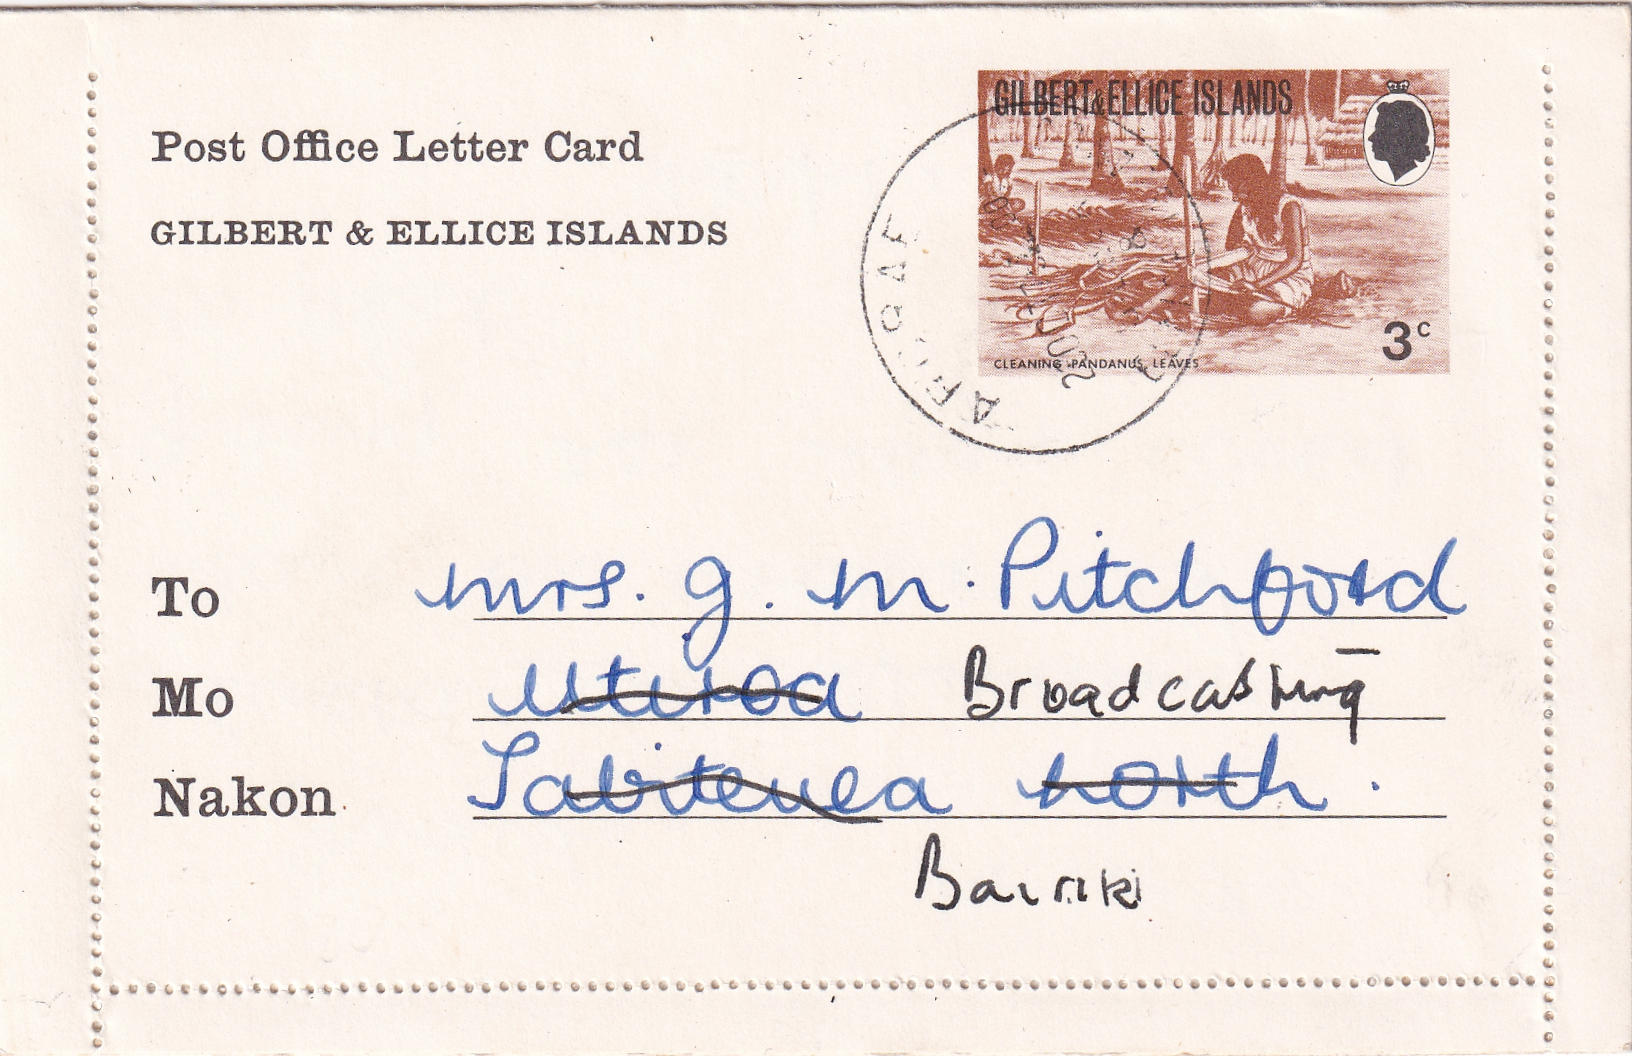 Post Office Letter Card
GILBERT & ELLICE ISLANDS
GILBERT & ELLICE ISLANDS
CLEANING PANDANUS LEAVES
3c
To Mrs. G. M. Pitchford
Mo Uteroa Broadcasting
Nakon Tabiteuea North.
Bairiki